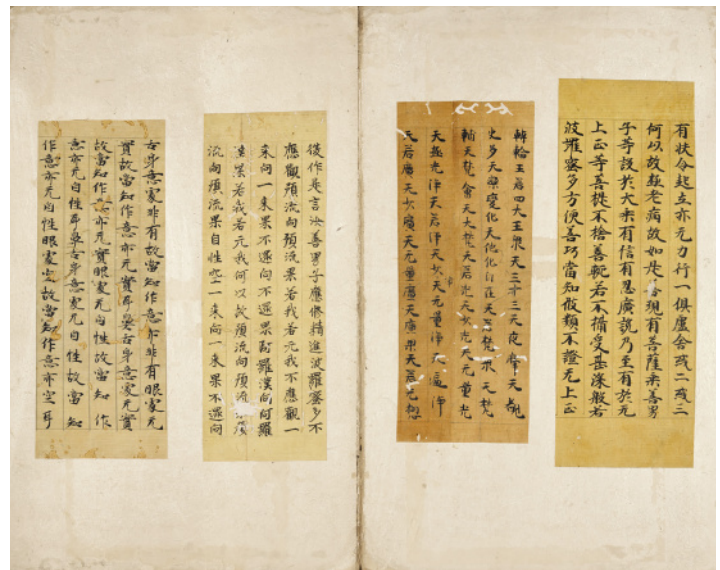 有扶令起立亦无力行一俱盧舍或二或三
何以故極老病故如是善現有菩薩乘善男
子等設於大乘有信有忍廣說乃至有於无
上正等菩提不捨善軛若不攝受甚深般若
波羅蜜多方便善巧當知彼類不證无上正
轉輪王若四大王衆天三十三天夜摩天覩
史多天樂變化天他化自在天若梵衆天梵
輔天梵會天大梵天若光天少光天无量光
天極光淨天若淨天少淨天无量淨天遍淨
天若廣天少廣天无量廣天廣果天若无想
復作是言汝善男子應修精進波羅蜜多不
應觀預流向預流果若我若无我不應觀一
來向一來果不還向不還果阿羅漢向阿羅
漢果若我若无我何以故預流向預流果預
流向預流果自性空一來向一來果不還向
舌身意處非有故當知作意亦非有眼處无
實故當知作意亦无實耳鼻舌身意處无實
故當知作意亦无實眼處无自性故當知作
意亦无自性耳鼻舌身意處无自性故當知
作意亦无自性眼處空故當知作意亦空耳